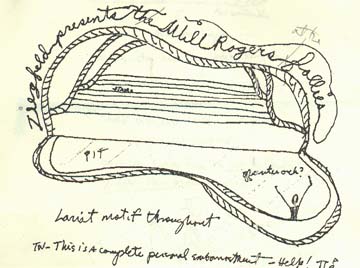 Ziegfeld presents the Will Rogers Follies
at the
stairs
PIT
apertwork?
Lariat motif throughout
TW - This is a complete personal embarrassment - Help! TTS